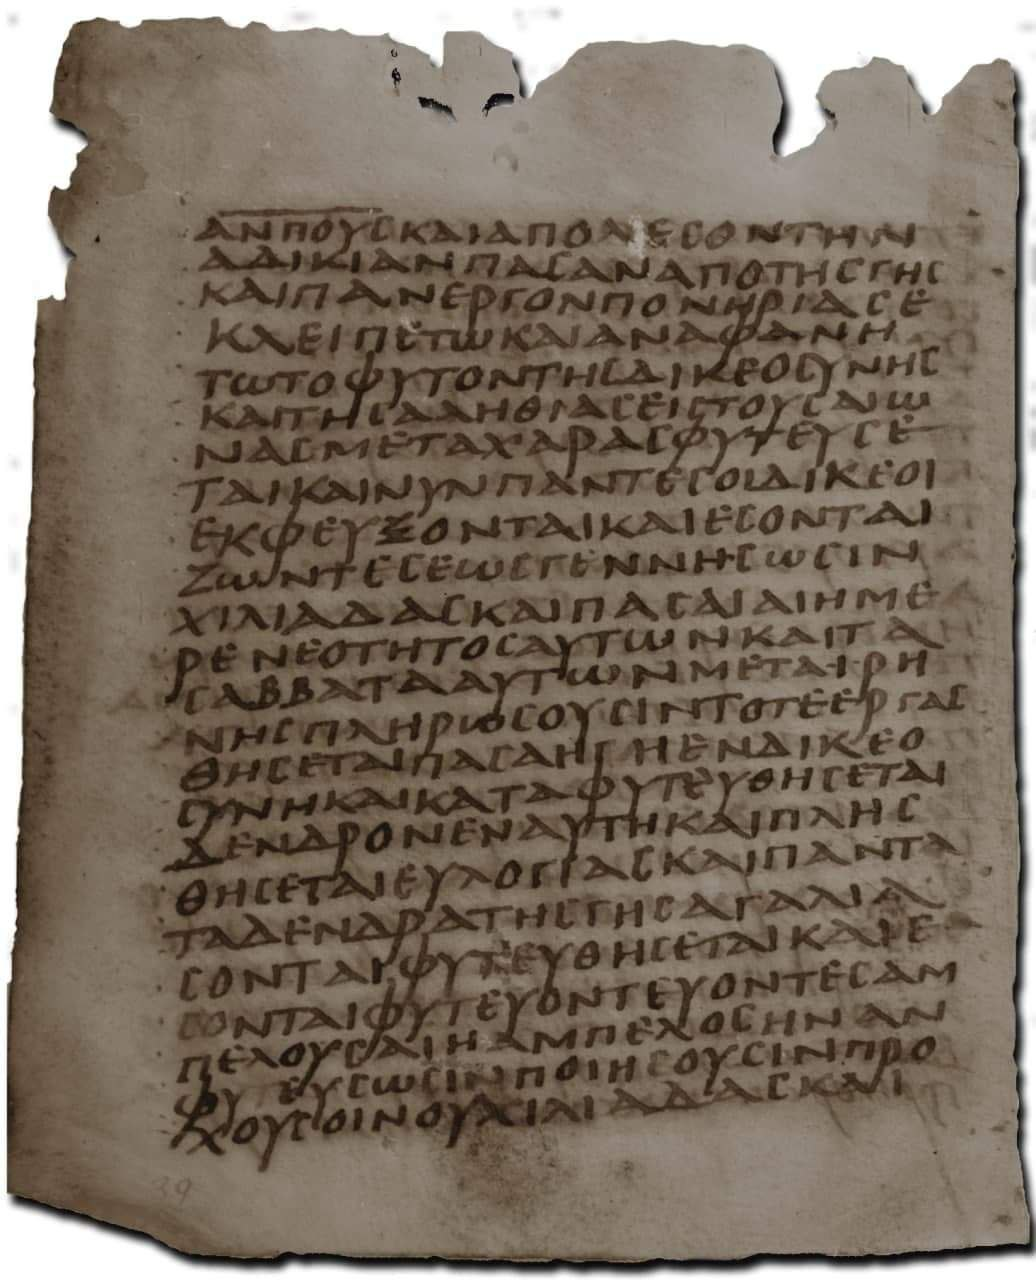 ΑΝΠΟΥϹΚΑΙΑΠΟΛΕϹΟΝΤΗΝ
ΑΔΙΚΙΑΝΠΑϹΑΝΑΠΟΤΗϹΓΗϹ
ΚΑΙΠΑΝΕΡΓΟΝΠΟΝΗΡΙΑϹΕ
ΚΛΕΙΠΕΤΩΚΑΙΑΝΑΦΑΝΗ
ΤΩΤΟΦΥΤΟΝΤΗϹΔΙΚΕΟϹΥΝΗϹ
ΚΑΙΤΗϹΑΛΗΘΙΑϹΕΙϹΤΟΥϹΑΙΩ
ΝΑϹΜΕΤΑΧΑΡΑϹΦΥΤΕΥϹΕ
ΤΑΙΚΑΙΝΥΝΠΑΝΤΕϹΟΙΔΙΚΕΟΙ
ΕΚΦΕΥΞΟΝΤΑΙΚΑΙΕϹΟΝΤΑΙ
ΖΩΝΤΕϹΕΩϹΓΕΝΝΗϹΩϹΙΝ
ΧΙΛΙΑΔΑϹΚΑΙΠΑϹΑΙΑΙΗΜΕ
ΡΕΝΕΟΤΗΤΟϹΑΥΤΩΝΚΑΙΤΑ
ϹΑΒΒΑΤΑΑΥΤΩΝΜΕΤΑΙΡΗ
ΝΗϹΠΛΗΡΩϹΟΥϹΙΝΤΟΤΕΕΡΓΑϹ
ΘΗϹΕΤΑΙΠΑϹΑΗΓΗΕΝΔΙΚΕΟ
ϹΥΝΗΚΑΙΚΑΤΑΦΥΤΕΥΘΗϹΕΤΑΙ
ΔΕΝΔΡΟΝΕΝΑΥΤΗΚΑΙΠΛΗϹ
ΘΗϹΕΤΑΙΕΥΛΟΓΙΑϹΚΑΙΠΑΝΤΑ
ΤΑΔΕΝΔΡΑΤΗϹΓΗϹΑΓΑΛΙΑ
ϹΟΝΤΑΙΦΥΤΕΥΘΗϹΕΤΑΙΚΑΙΕ
ϹΟΝΤΑΙΦΥΤΕΥΟΝΤΕΥΟΝΤΕϹΑΜ
ΠΕΛΟΥϹΑΙΗΑΜΠΕΛΟϹΗΝΑΝ
ΦΥΤΕΥϹΩϹΙΝΠΟΙΗϹΟΥϹΙΝΠΡΟ
ΧΟΥϹΟΙΝΟΥΧΙΛΙΑΔΑϹΚΑΙ
39